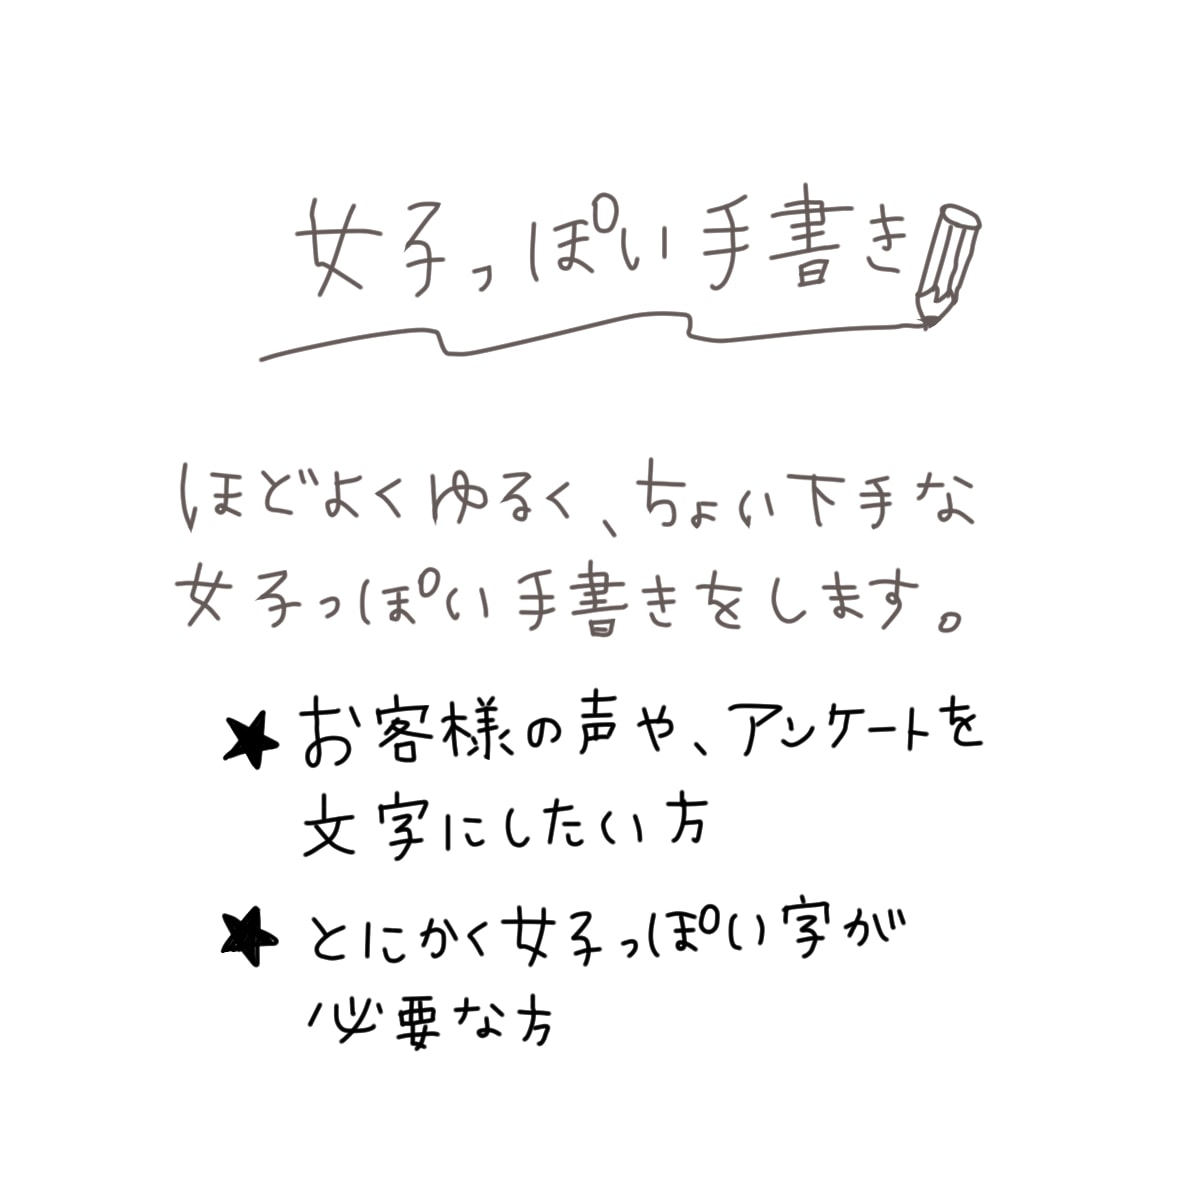 女子っぽい手書き
ほどよくゆるく、ちょい下手な
女子っぽい手書きをします。
★お客様の声や、アンケートを
文字にしたい方
★とにかく女子っぽい字が
必要な方